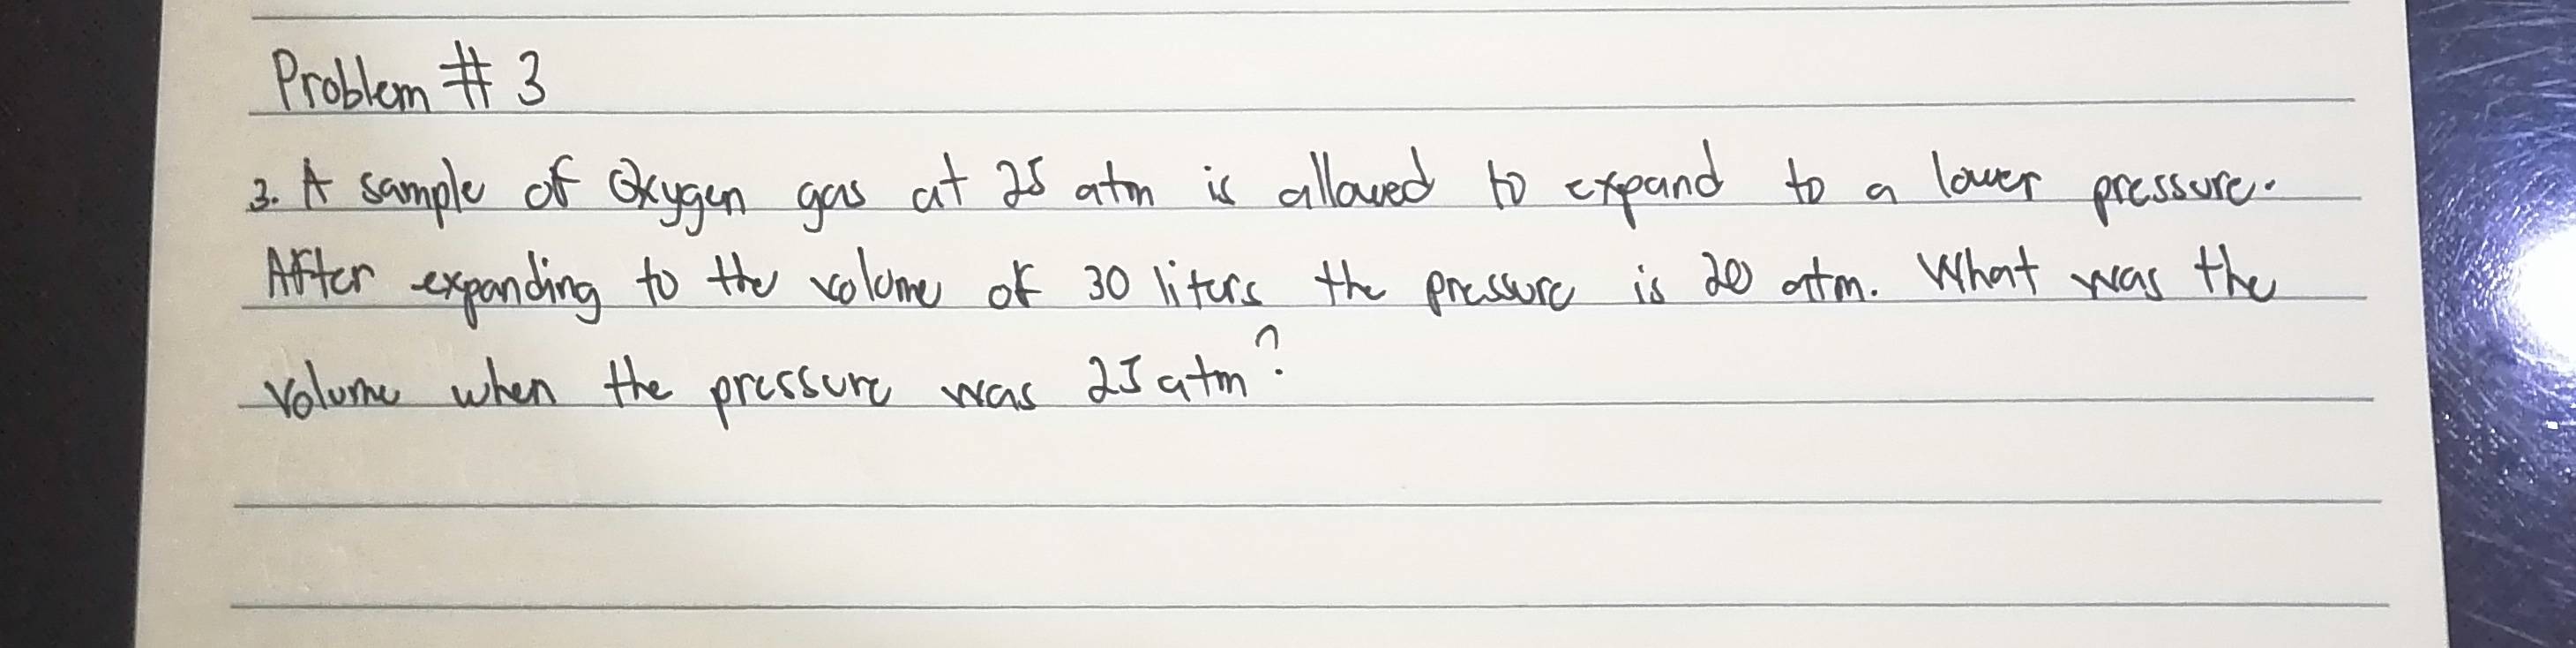 Problem # 3
3. A sample of Oxygen gas at 25 atm is allowed to expand to a lower pressure.
After expanding to the volume of 30 liters the pressure is 20 atm. What was the
volume when the pressure was 25 atm?